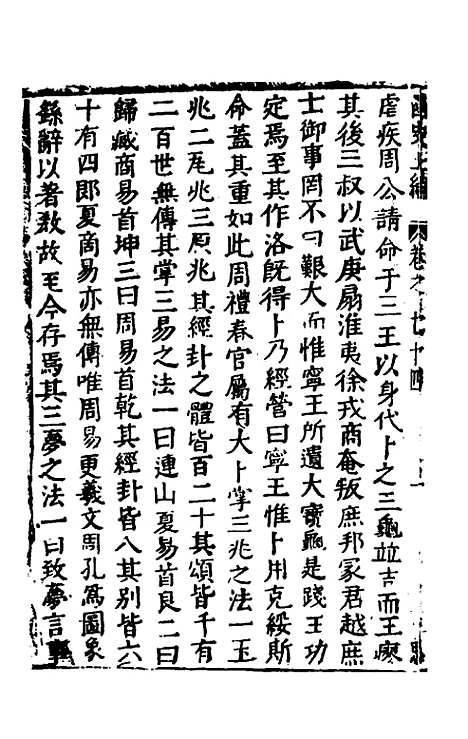 虐疾周公請命于三王以身代卜之三龜竝吉而王瘳
其後三叔以武庚扇淮夷徐戎商奄叛庶邦冢君越庶
士御事罔不曰艱大而惟寧王所遺大寶龜是踐王功
定焉至其作洛旣得卜乃經營曰寧王惟卜用克綏斯
命蓋其重如此周禮春官屬有大卜掌三兆之法一玉
兆二瓦兆三原兆其經卦之體皆百二十其頌皆千有
二百世無傳其掌三易之法一曰連山夏易首艮二曰
歸藏商易首坤三曰周易首乾其經卦皆八其別皆六
十有四郎夏商易亦無傳唯周易更羲文周孔爲圖象
繇辭以著教故至今存焉其三夢之法一曰致夢言事
卷之七十四